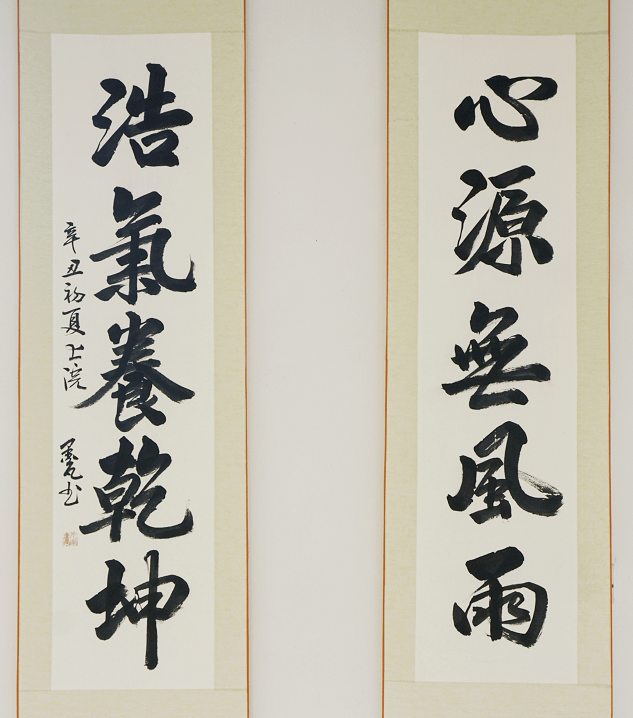 心源無風雨
浩氣養乾坤
辛丑初夏上浣
書